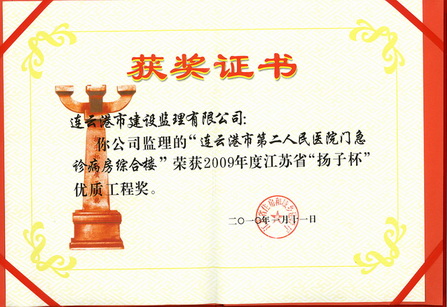 获奖证书
连云港市建设监理有限公司：
你公司监理的“连云港市第二人民医院门急
诊病房综合楼”荣获2009年度江苏省“扬子杯”
优质工程奖。
二〇一〇年一月十一日